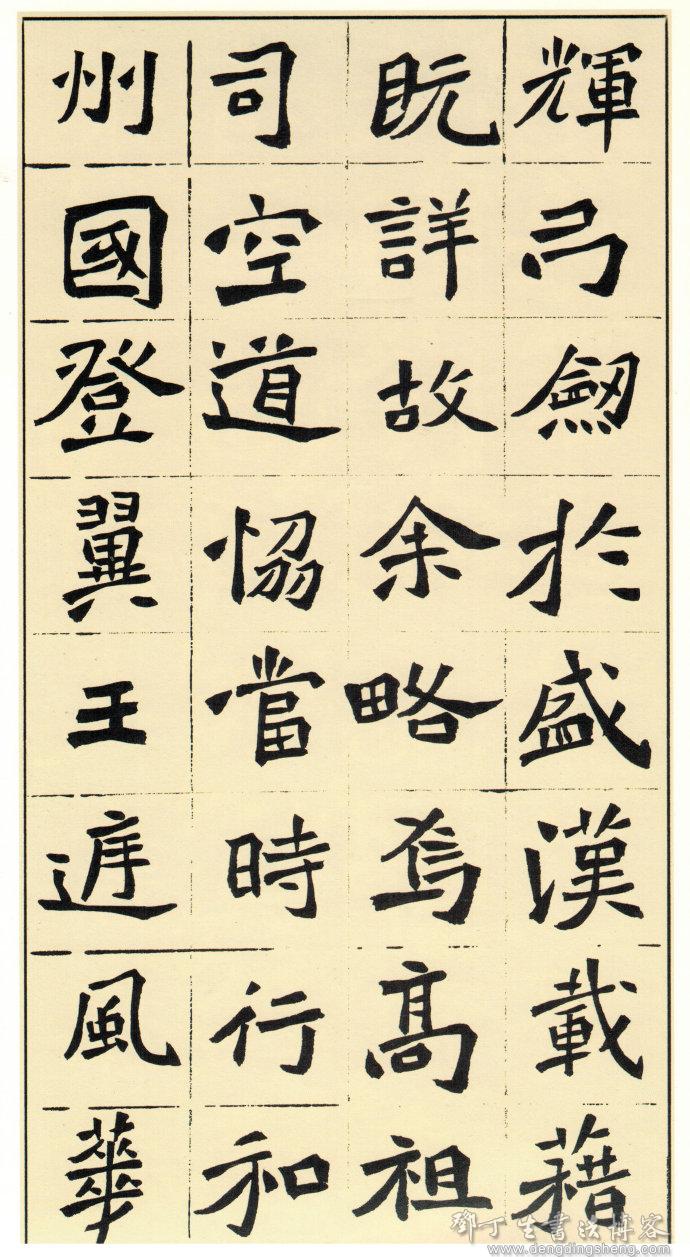 輝弓劒於盛漢載藉
既詳故余略焉高祖
司空道恊當時行和
州國登翼王庭風華
鄧丁生書法博客
www.dengdingsheng.com